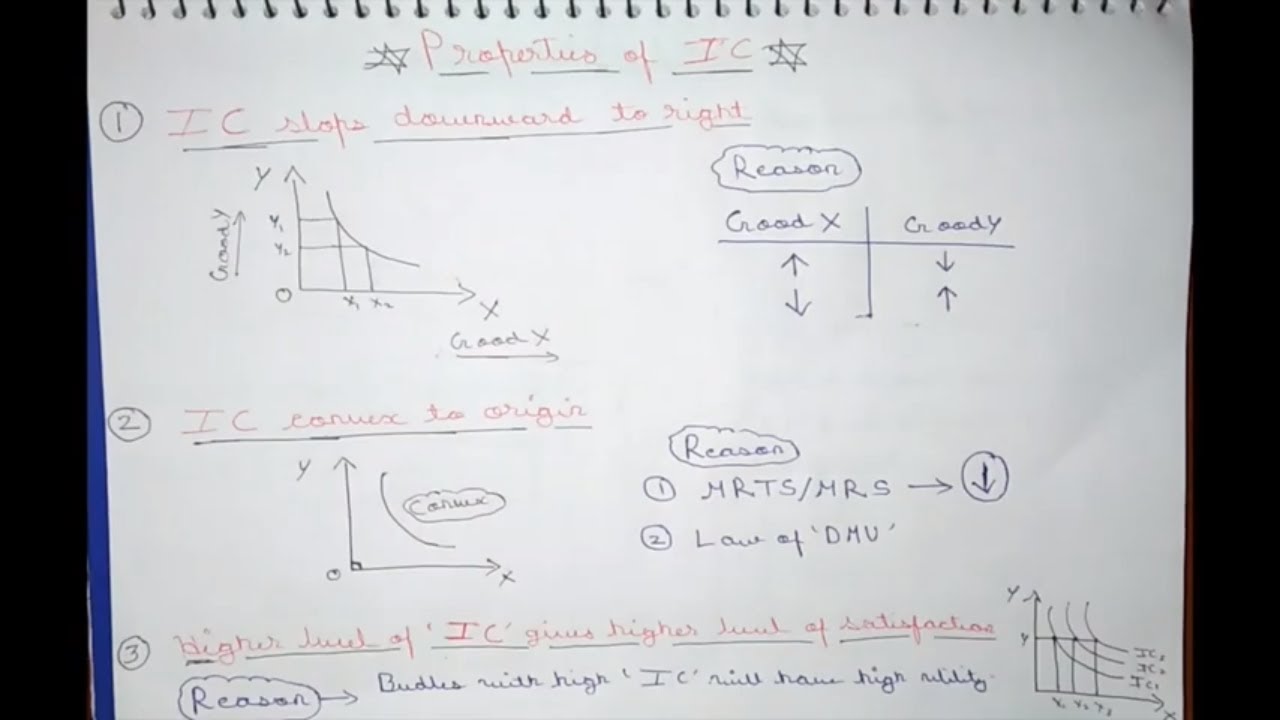 Properties of IC
① IC slops downward to right
Y
Good Y
Y₁
Y₂
O
X₁ X₂
X
Good X
Reason
Good X Good Y
↑ ↓
↓ ↑
② IC convex to origin
Y
Convex
O
X
Reason
① MRTS/MRS → ↓
② Law of 'DMU'
③ Higher level of 'IC' gives higher level of satisfaction
Reason → Budles with high 'IC' will have high utility.
Y
Y
IC₃
IC₂
IC₁
X₁ X₂ X₃
X